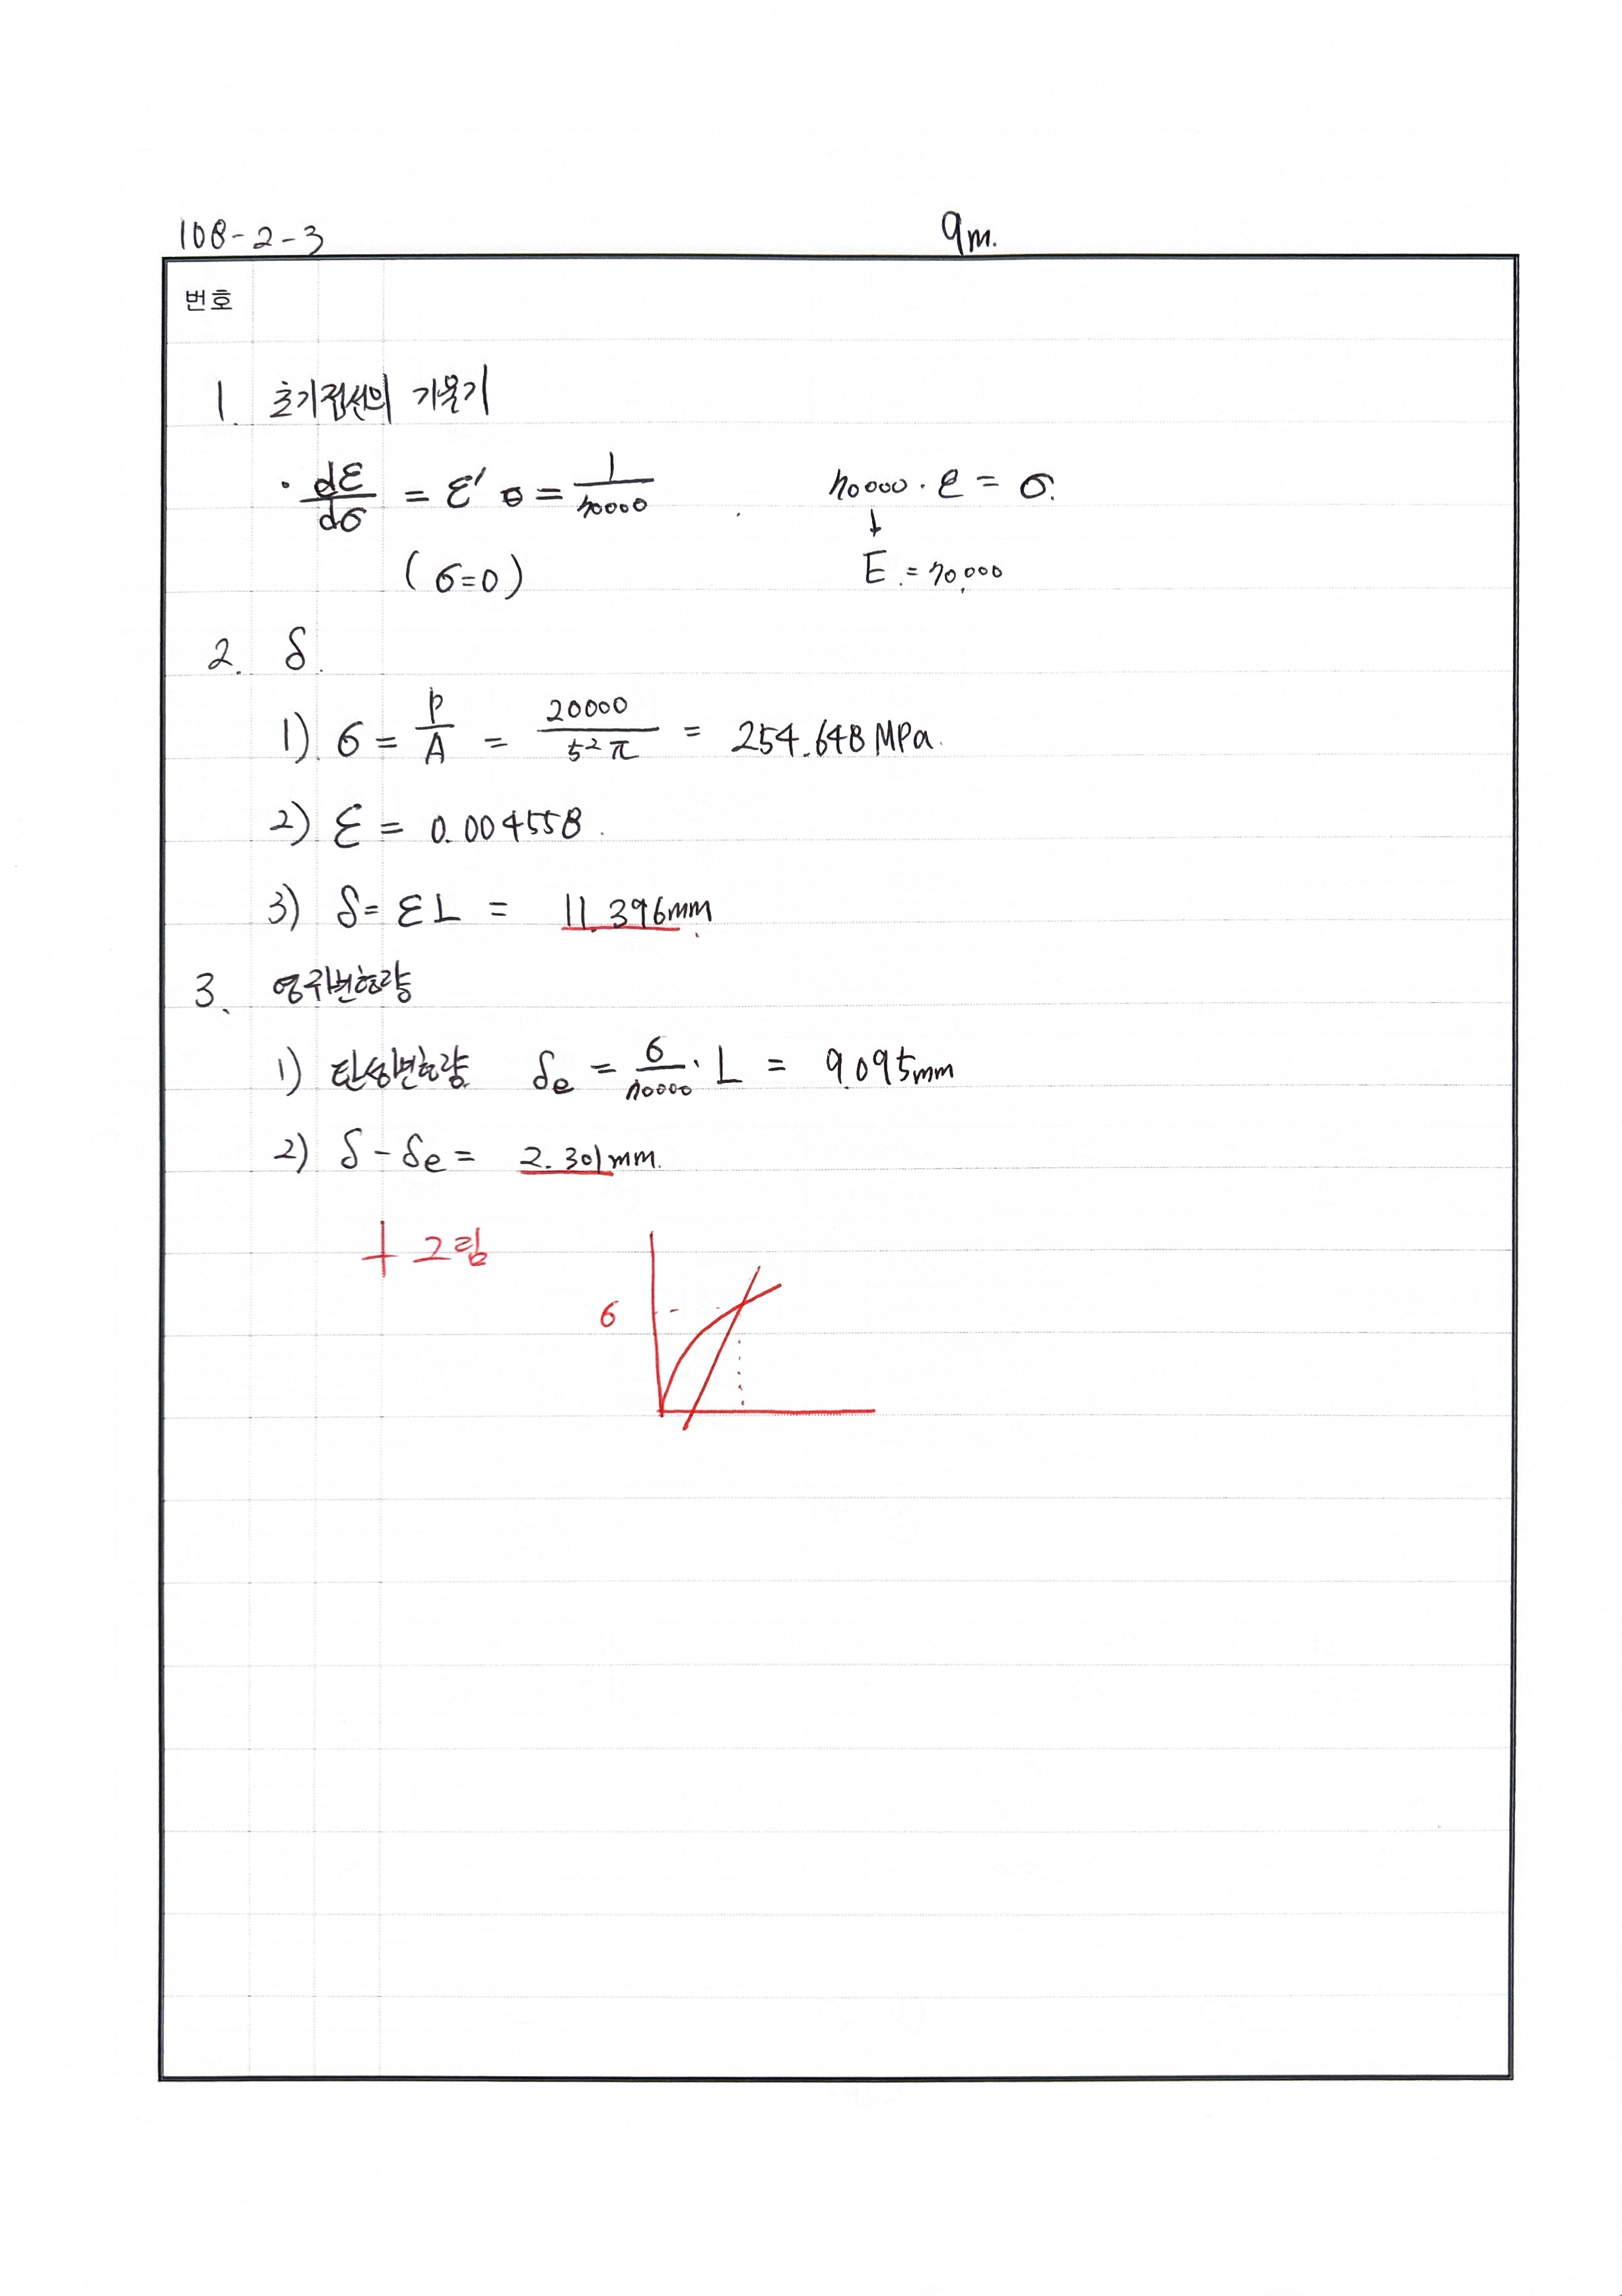 108-2-3 9m.
번호
1. 초기접선의 기울기
· dε/dσ = ε' σ = 1/70000 70000 · ε = σ.
(σ=0) ↓ E = 70,000
2. δ.
1) σ = P/A = 20000/5²π = 254.648 MPa.
2) ε = 0.004558.
3) δ = εL = 11.396mm
3. 영구변형량
1) 탄성변형량 δe = σ/70000 · L = 9.095mm
2) δ - δe = 2.301mm.
+ 그림
σ